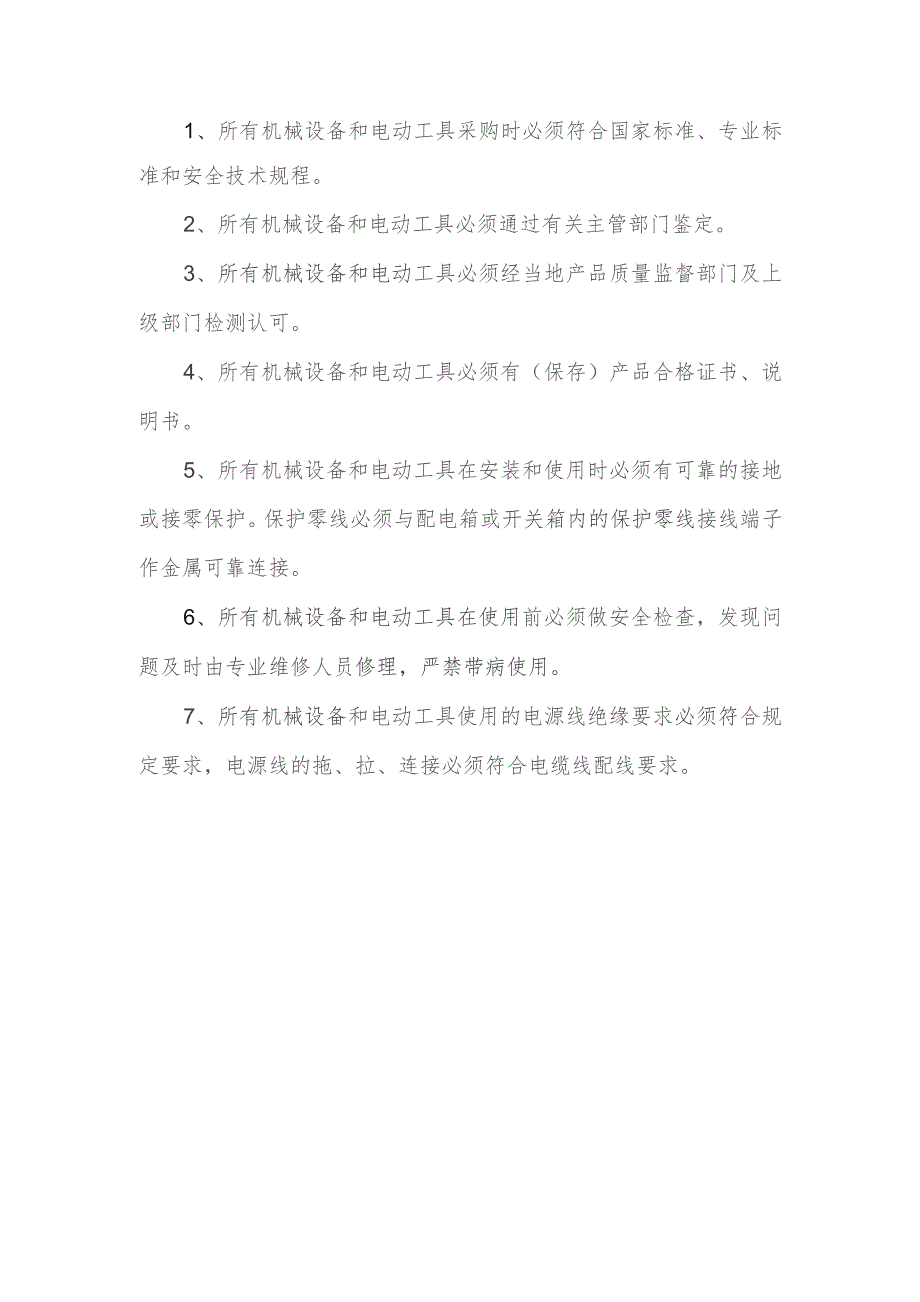 1、所有机械设备和电动工具采购时必须符合国家标准、专业标
准和安全技术规程。
2、所有机械设备和电动工具必须通过有关主管部门鉴定。
3、所有机械设备和电动工具必须经当地产品质量监督部门及上
级部门检测认可。
4、所有机械设备和电动工具必须有（保存）产品合格证书、说
明书。
5、所有机械设备和电动工具在安装和使用时必须有可靠的接地
或接零保护。保护零线必须与配电箱或开关箱内的保护零线接线端子
作金属可靠连接。
6、所有机械设备和电动工具在使用前必须做安全检查，发现问
题及时由专业维修人员修理，严禁带病使用。
7、所有机械设备和电动工具使用的电源线绝缘要求必须符合规
定要求，电源线的拖、拉、连接必须符合电缆线配线要求。